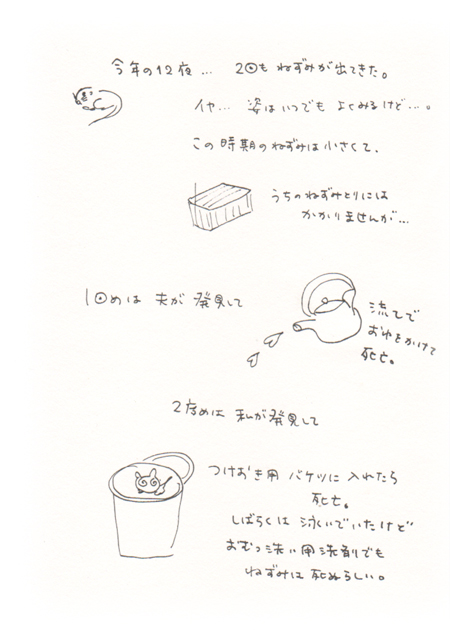 今年の12夜… 2回も ねずみが出てきた。
イヤ… 姿はいつでも よくみるけど…。
この時期のねずみは小さくて、
うちのねずみとりには
かかりませんが…
1回めは 夫が 発見して
流しで
おゆをかけて
死亡。
2度めは 私が発見して
つけおき用 バケツに 入れたら
死亡。
しばらくは 泳いでいたけど
おむつ洗い用洗剤でも
ねずみは 死ぬらしい。